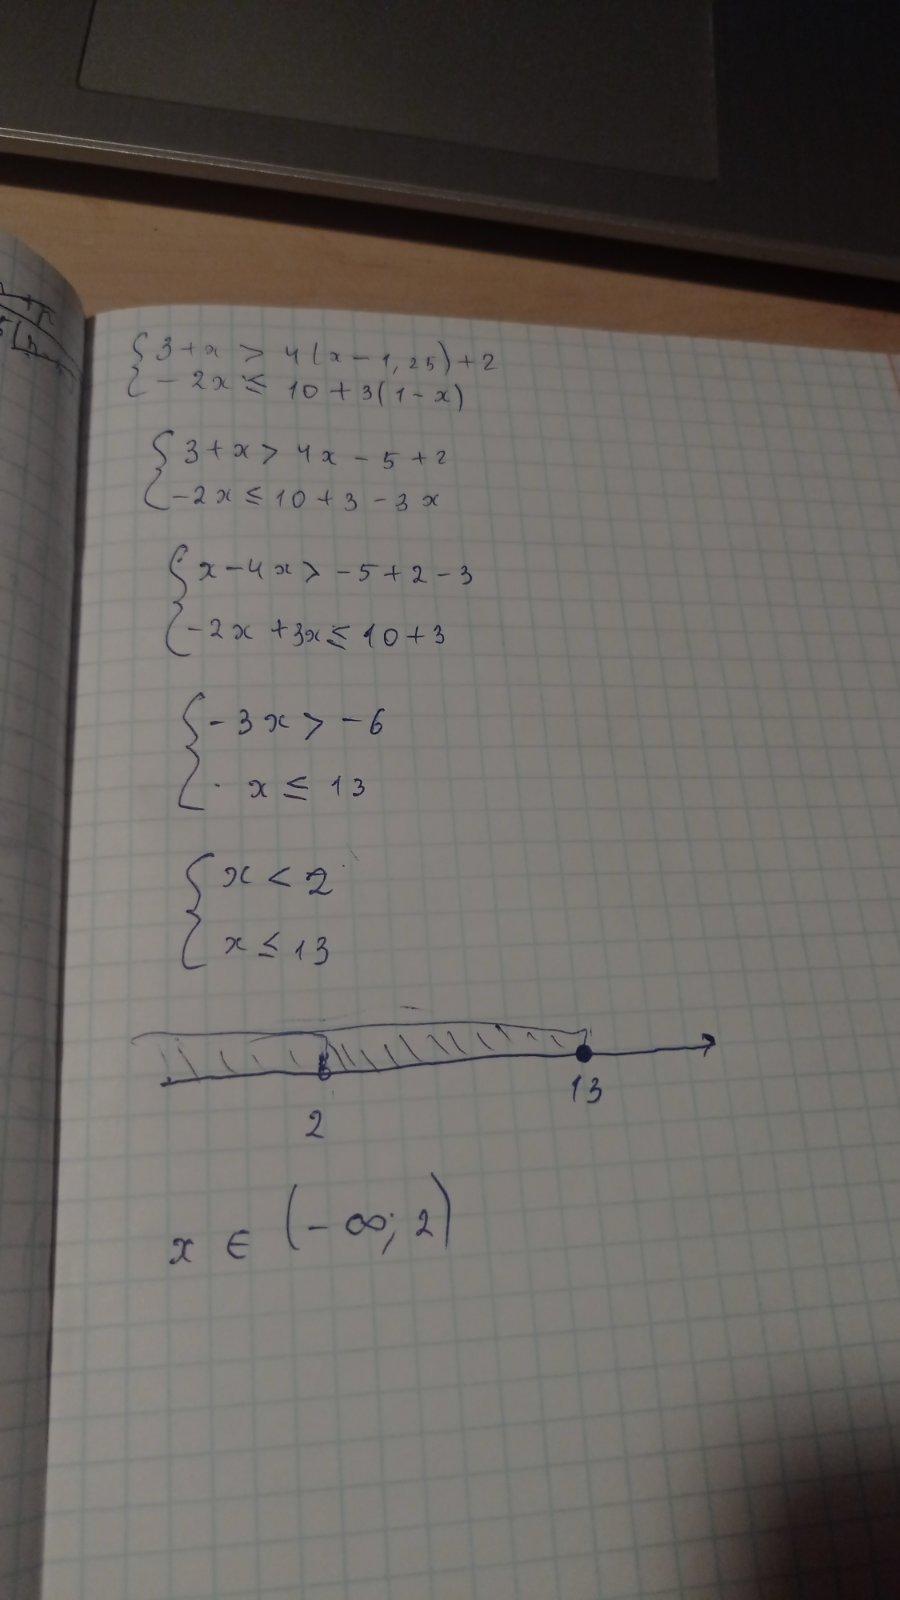 { 3 + x > 4(x - 1,25) + 2
- 2x ≤ 10 + 3(1 - x)
{ 3 + x > 4x - 5 + 2
- 2x ≤ 10 + 3 - 3x
{ x - 4x > -5 + 2 - 3
-2x + 3x ≤ 10 + 3
{ - 3x > -6
x ≤ 13
{ x < 2
x ≤ 13
2 13
x ∈ (- ∞; 2)